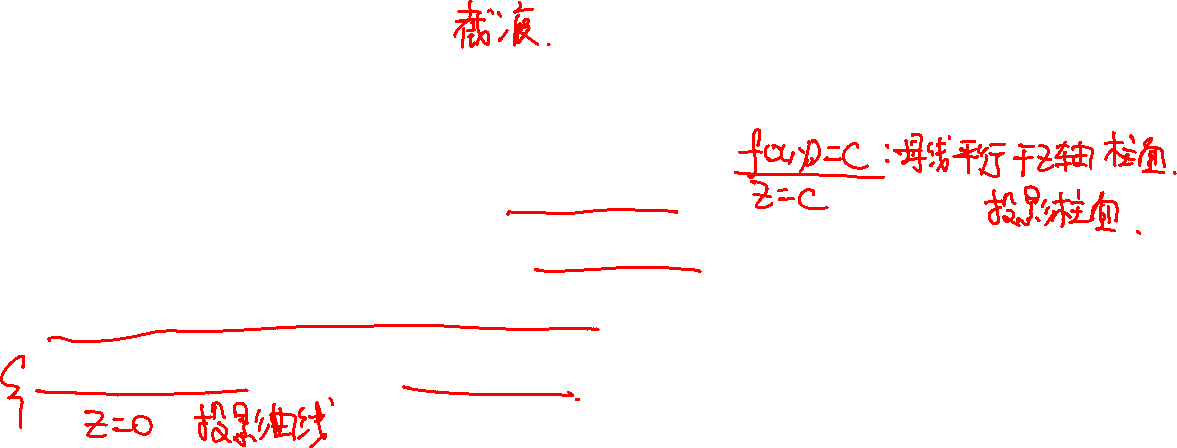 截痕.
f(x,y)=C:母线平行于Z轴 柱面.
Z=C
投影柱面.
{
Z=0 投影曲线